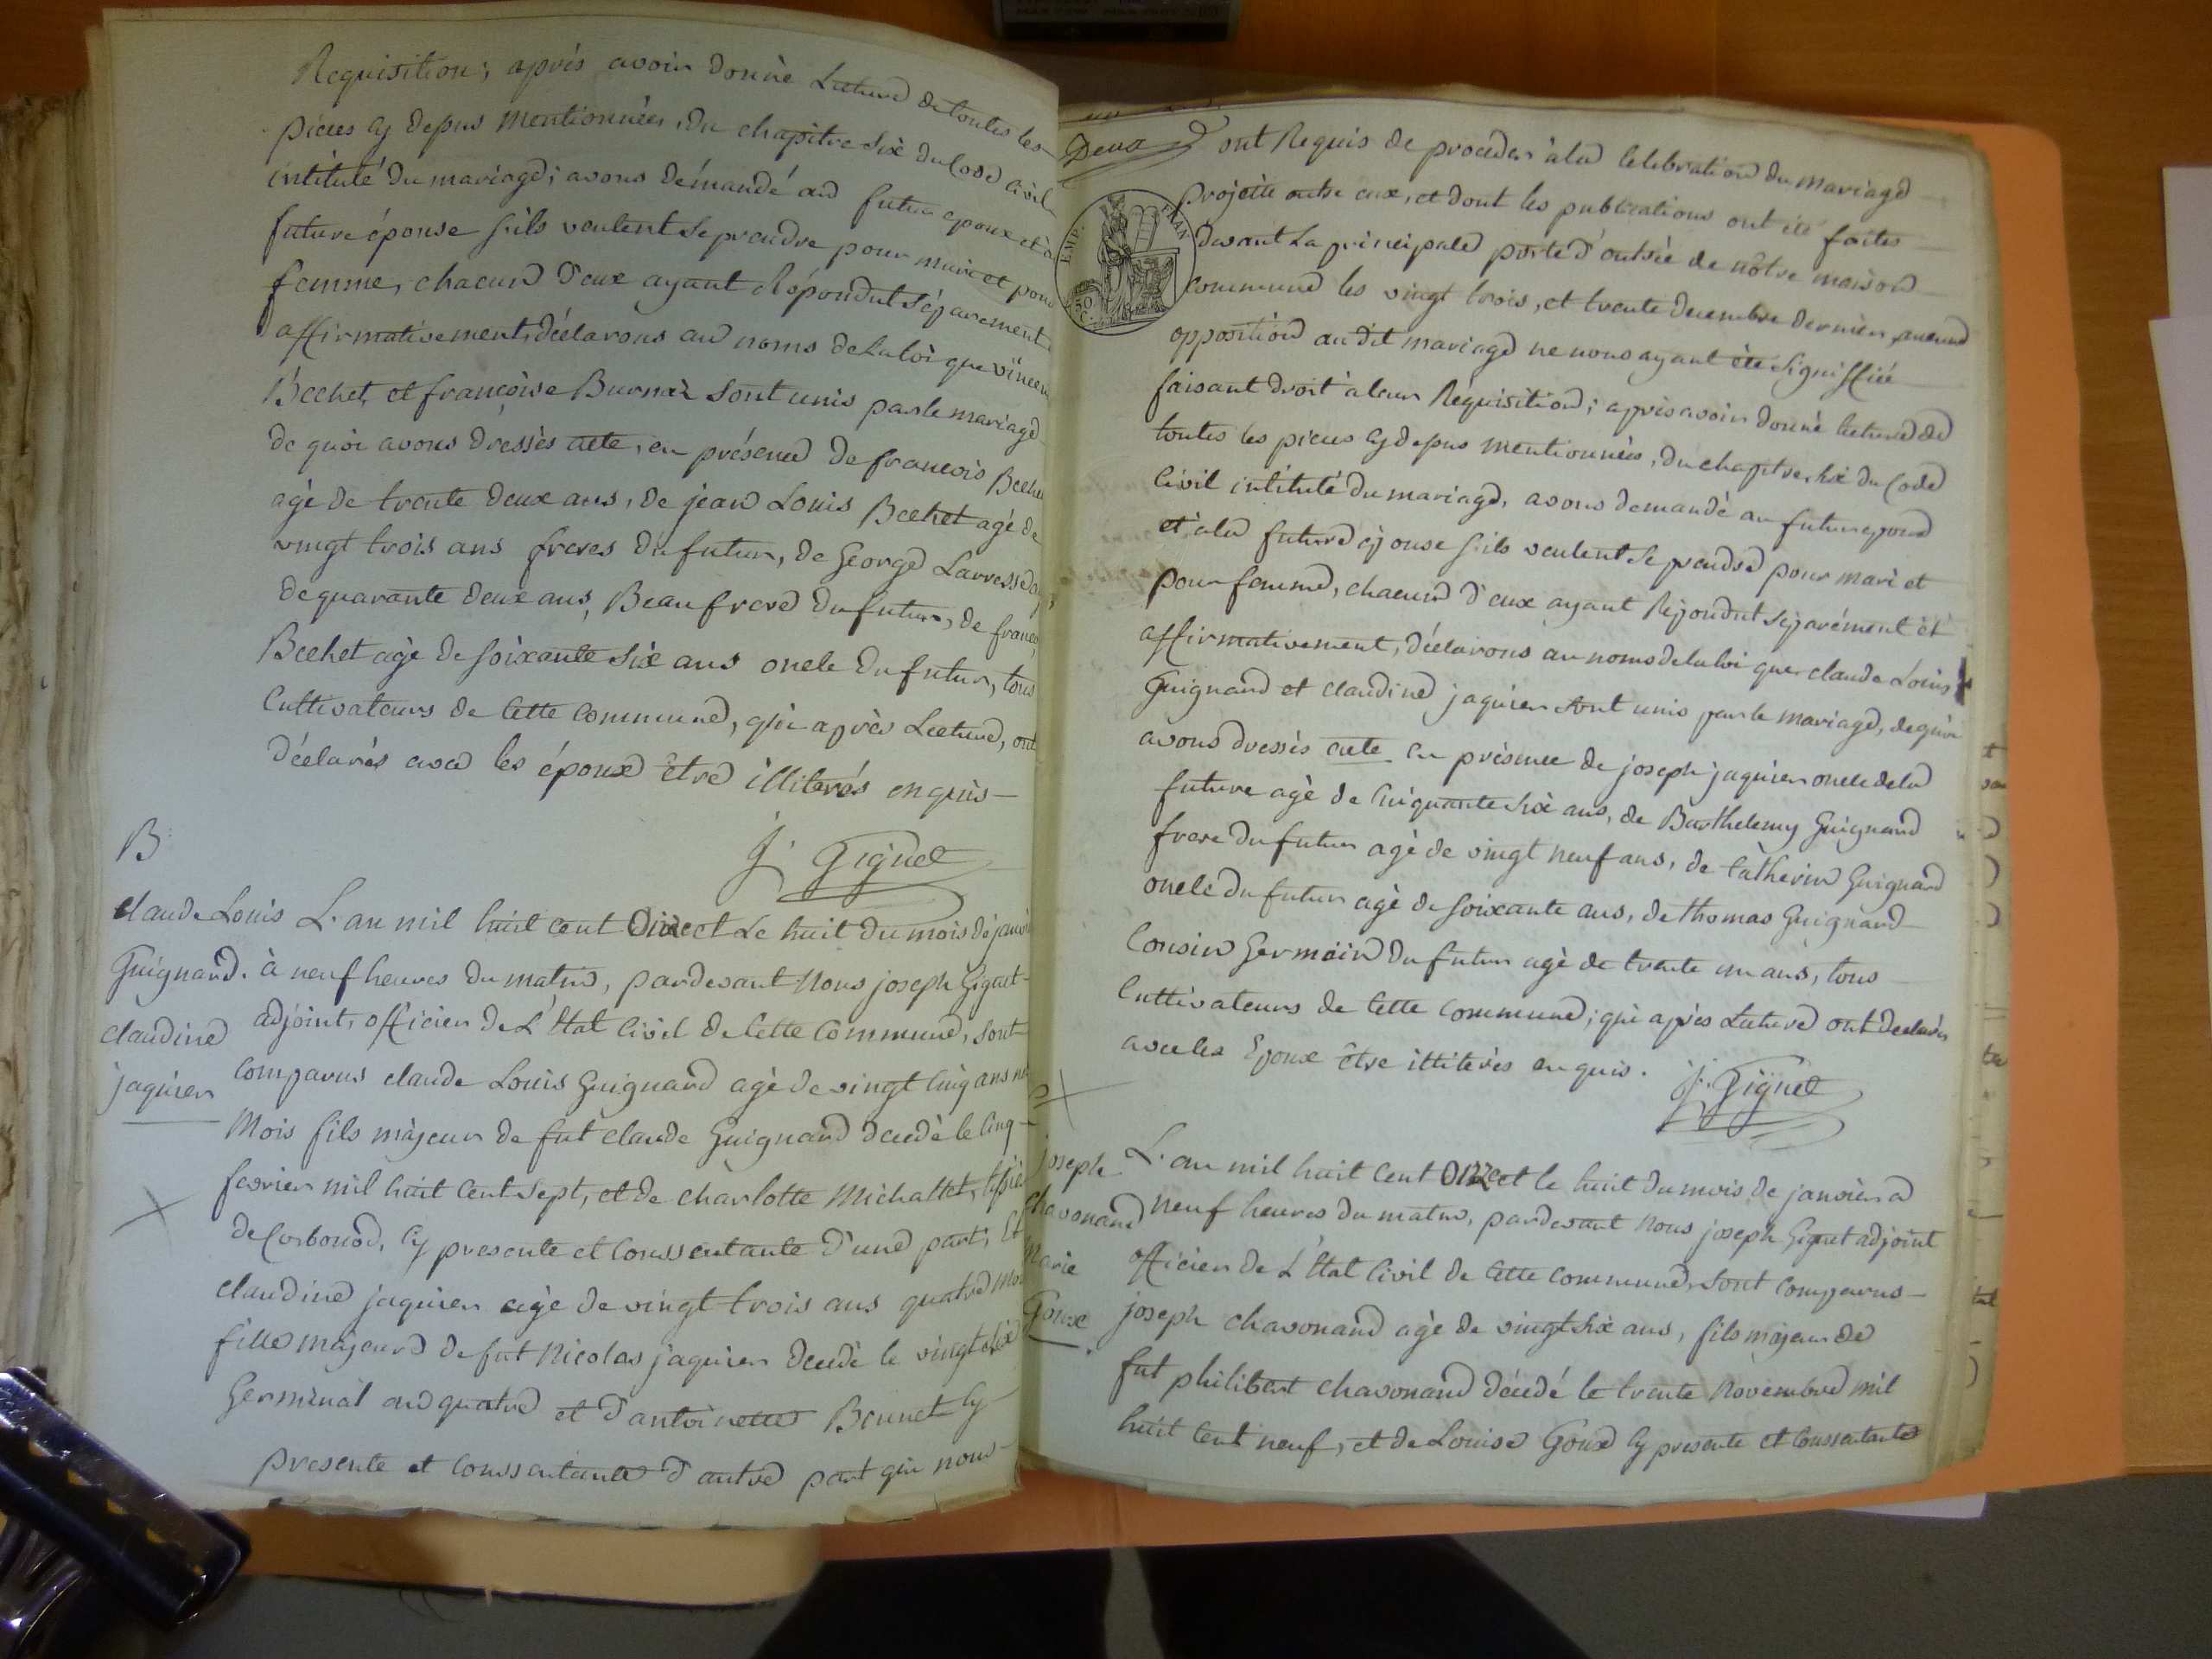 Requisition; après avoir donnè Lecture de toutes les
pieces cy dessus mentionnées, du chapitre six du Code civil
intitulé du mariage; avons démandé au futur epoux et à
future épouse s'ils veulent se prendre pour mari et pour
femme, chacun d'eux ayant répondut séparement
affirmativement, déclarons au noms de la loi que vincent
Bechet, et françoise Burnier sont unis par le mariage
de quoi avons dressès acte, en présence de francois Bechet
agé de trente deux ans, de jean Louis Bechet agé de
vingt trois ans freres du futur, de George Larresse
de quarante deux ans, Beau frere du futur, de franc
Bechet agé de soixante six ans oncle du futur, tous
Cultivateurs de cette commune, qui après Lecture, ont
déclarés avec les époux être illiterés enquis
J. Gignet
B
claude Louis
Guignard.
claudine
jaquier
L'an mil huit cent Dix et le huit du mois de janvi
à neuf heures du matin, pardevant nous joseph Gignet
adjoint, officier de L'Etat Civil de cette Commune, sont
Comparus claude Louis Guignard agé de vingt cinq ans
Mois fils majeur de fut claude Guignard decedé le cinq
fevrier mil huit cent sept, et de charlotte Michallet
de Corbonod, cy presente et conssentante d'une part, Et
claudine jaquier agée de vingt trois ans quatre moi
fille majeure de fut Nicolas jaquier decedé le vingt six
Germinal an quatre et d'antoinette Bonnet cy
presente et conssentante d'autre part qui nous
Deux
EMP. FRAN
50 C.
ont Requis de proceder à la celebration du mariage
projetté entre eux, et dont les publications ont été faites
devant la principale porte d'entrée de nôtre maison
commune les vingt trois, et trente decembre dernier, aucune
opposition au dit mariage ne nous ayant été signiffiée
faisant droit à leur Réquisition; après avoir donné lecture de
toutes les pieces cy dessus mentionnées, du chapitre six du Code
Civil intitulé du mariage, avons demandé au futur epoux
et à la future epouse s'ils veulent se prendre pour mari et
pour femme, chacun d'eux ayant Répondut séparément et
affirmativement, déclarons au noms de la loi que claude Louis
Guignard et claudine jaquier sont unis par le mariage, de quoi
avons dressés acte en présence de joseph jaquier oncle de la
future agé de cinquante six ans, de Barthelemy Guignard
frere du futur agé de vingt neuf ans, de Catherin Guignard
oncle du futur agé de soixante ans, de thomas Guignard
Cousin Germain du futur agé de trente un ans, tous
Cultivateurs de cette commune; qui après Lecture ont declarés
avec les Epoux être illiterés enquis.
J. Gignet
joseph
chavonand
Marie
Goux
L'an mil huit cent Dix et le huit du mois de janvier a
neuf heures du matin, pardevant nous joseph Gignet adjoint
officier de L'Etat Civil de cette commune, sont comparus
joseph chavonand agé de vingt six ans, fils majeur de
fut philibert chavonand décédé le trente Novembre mil
huit cent neuf, et de Louise Goux cy presente et conssentante